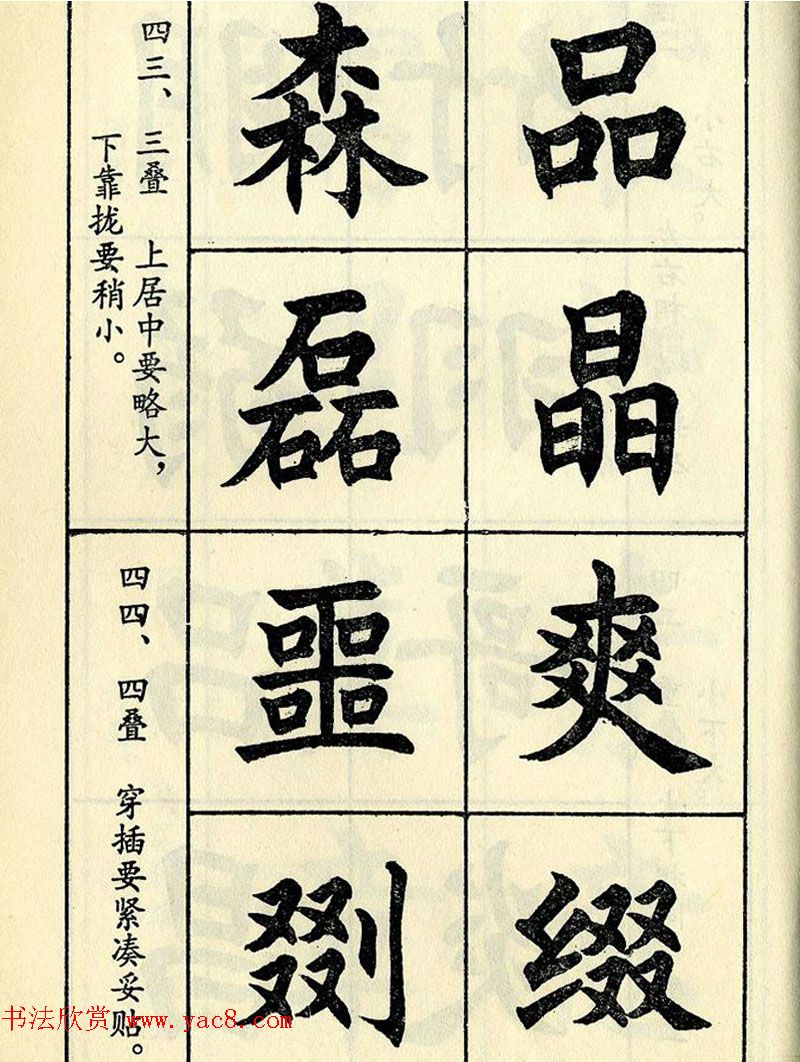 四三、三叠 上居中要略大，
下靠拢要稍小。
品
晶
森
磊
四四、四叠 穿插要紧凑妥贴。
爽
缀
噩
剟
书法欣赏 www.yac8.com